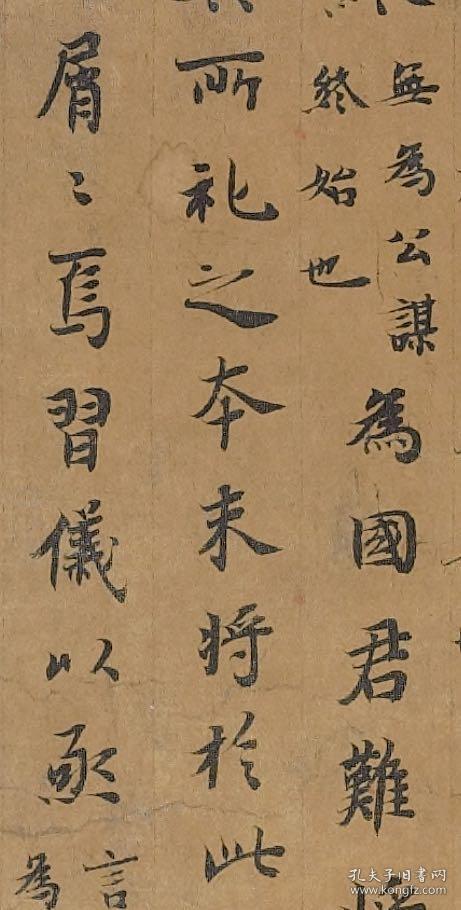 無為公謀
終始也
為國君難
所礼之夲末将扵此
屑〻焉習儀以亟
言
為
孔夫子旧书网
www.kongfz.com